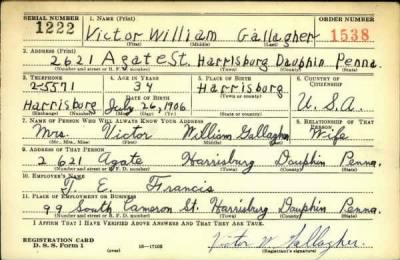 SERIAL NUMBER 1. NAME (Print) ORDER NUMBER
1222 Victor William Gallagher 1538
(First) (Middle) (Last)
2. ADDRESS (Print)
2621 Agate St. Harrisburg Dauphin Penna.
(Number and street or R. F. D. number) (Town) (County) (State)
3. TELEPHONE 4. AGE IN YEARS 5. PLACE OF BIRTH 6. COUNTRY OF CITIZENSHIP
2-5571 34 Harrisburg
DATE OF BIRTH (Town or county)
Harrisburg July 26, 1906 U.S.A.
(Exchange) (Number) (Mo.) (Day) (Yr.) (State or country)
7. NAME OF PERSON WHO WILL ALWAYS KNOW YOUR ADDRESS 8. RELATIONSHIP OF THAT PERSON
Mrs. Victor William Gallagher Wife
(Mr., Mrs., Miss) (First) (Middle) (Last)
9. ADDRESS OF THAT PERSON
2621 Agate Harrisburg Dauphin Penna.
(Number and street or R. F. D. number) (Town) (County) (State)
10. EMPLOYER'S NAME
T. E. Francis
11. PLACE OF EMPLOYMENT OR BUSINESS
99 South Cameron St. Harrisburg Dauphin Penna.
(Number and street or R. F. D. number) (Town) (County) (State)
I AFFIRM THAT I HAVE VERIFIED ABOVE ANSWERS AND THAT THEY ARE TRUE.
REGISTRATION CARD Victor W. Gallagher.
D. S. S. Form 1 (over) 16—17105 (Registrant's signature)